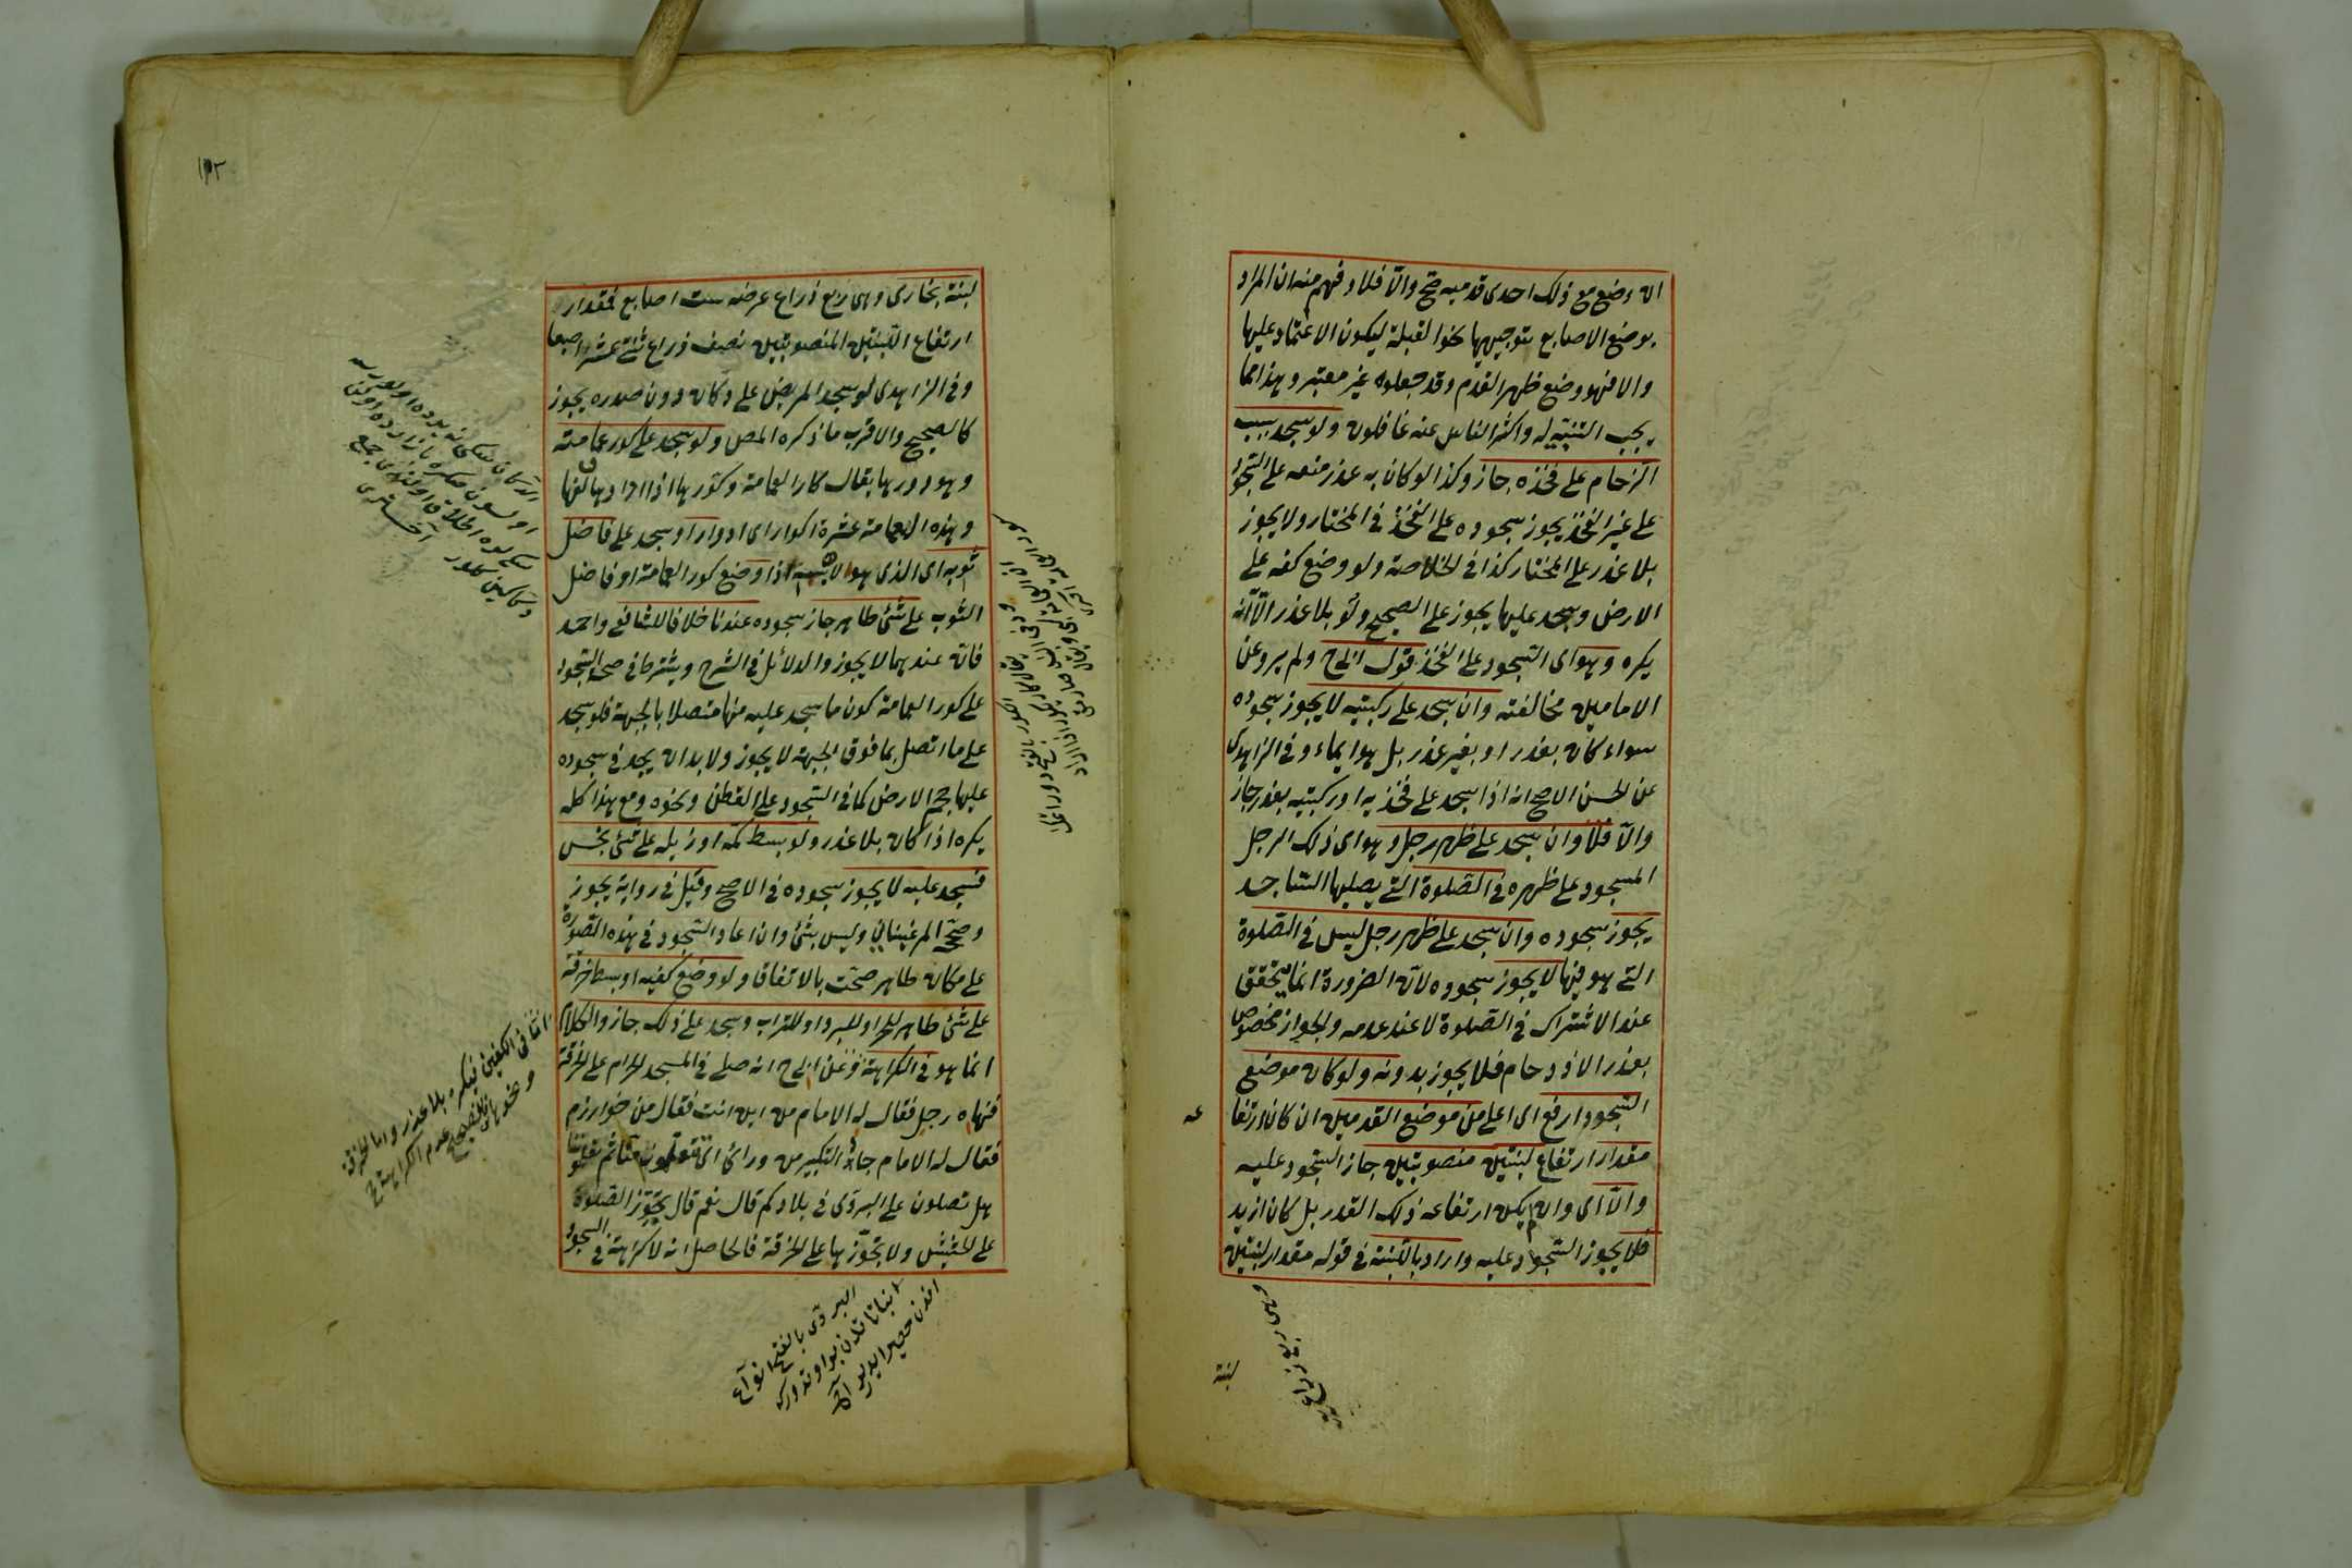 ان وضع مع ذلك احدى قدميه صح والّا فلا وفهم منه ان المراد
بوضع الاصابع توجيهها نحو القبلة ليكون الاعتماد عليها
والا فهو وضع ظهر القدم وقد جعلوه غير معتبر وهذا مما
يجب التنبيه له واكثر الناس عنه غافلون ولو سجد بسبب
الزحام على فخذه جاز وكذا لو كان به عذر منعه على السجود
على غير الفخذ يجوز سجوده على الفخذ في المختار ولا يجوز
بلا عذر على المختار كذا في الخلاصة ولو وضع كفه على
الارض وسجد عليها يجوز على الصحيح ولو بلا عذر الّا انّه
يكره وهو اى السجود على الفخذ قول ابى ح ولم يرو عن
الامامين مخالفته وان سجد على ركبتيه لا يجوز سجوده
سواء كان بعذر او بغير عذر بل هو ايماء وفي الزاهدى
عن الحسن الاصح انه اذا سجد على فخذيه او ركبتيه بعذر جاز
والّا فلا وان سجد على ظهر رجل وهو اى ذلك الرجل
المسجود على ظهره في الصّلوة التى يصليها الساجد
يجوز سجوده وان سجد على ظهر رجل ليس في الصّلوة
التى هو فيها لا يجوز سجوده لانّ الضرورة انما يتحقق
عند الاشتراك في الصّلوة لا عند عدمه والجواز مخصوص
بعذر الازدحام فلا يجوز بدونه ولو كان موضع
السجود ارفع اى اعلى من موضع القدمين ان كان ارتفا
عه
مقدار ارتفاع لبنتين منصوبتين جاز السجود عليه
والّا اى وان لم يكن ارتفاعه ذلك القدر بل كان ازيد
فلا يجوز السجود عليه واراد باللبنة في قوله مقدار لبنتين
لبنة
لبنة بخارى وهى ربع ذراع عرضه ست اصابع فمقدار
ارتفاع اللبنتين المنصوبتين نصف ذراع ثنتى عشر اصبعا
وفي الزاهدى لو سجد المريض على دكان دون صدره يجوز
كالصحيح والاقرب ما ذكره المص ولو سجد على كور عمامته
وهو دورها يقال كار العمامة وكوّرها اذا ادارها ولفها
وهذه العمامة عشرة اكوار اى ادوار او سجد على فاضل
ثوبه اى الذى هو لابسه اذا وضع كور العمامة او فاضل
الثوب على شئ طاهر جاز سجوده عندنا خلافا للشافعى واحمد
فانّه عندهما لا يجوز والدلائل في الشرح ويشترط في صحة السجود
على كور العمامة كون ما سجد عليه منها متصلا بالجبهة فلو سجد
على ما اتصل بما فوق الجبهة لا يجوز ولا بد ان يجد في سجوده
عليها حجم الارض كما في السجود على القطن ونحوه ومع هذا كله
يكره اذا كان بلا عذر ولو بسط كمّه او ذيله على شئ نجس
فسجد عليه لا يجوز سجوده في الاصح وقيل في رواية يجوز
وصحّحه المرغينانى وليس بشئ وان اعاد السجود في هذه الصّورة
على مكان طاهر صحّت بالاتفاق ولو وضع كفيه او بسط خرقة
على شئ طاهر للحر او للبرد او للتراب وسجد على ذلك جاز والكلام
انما هو في الكراهة وعن ابى ح انه صلى في المسجد الحرام على الخرقة
فنهاه رجل فقال له الامام من اين انت فقال من خوارزم
فقال له الامام جاء التكبير من ورائى اى تتعلّمون منّا ثم تعلّموننا
هل تصلون على البردى في بلادكم قال نعم قال يجوّز الصّلوة
على الحشيش ولا تجوّزها على الخرقة فالحاصل انه لا كراهة في السجود
امّا في الكفين فيكره بلا عذر واما الخرقة
ونحوها فالصحيح عدم الكراهة ح